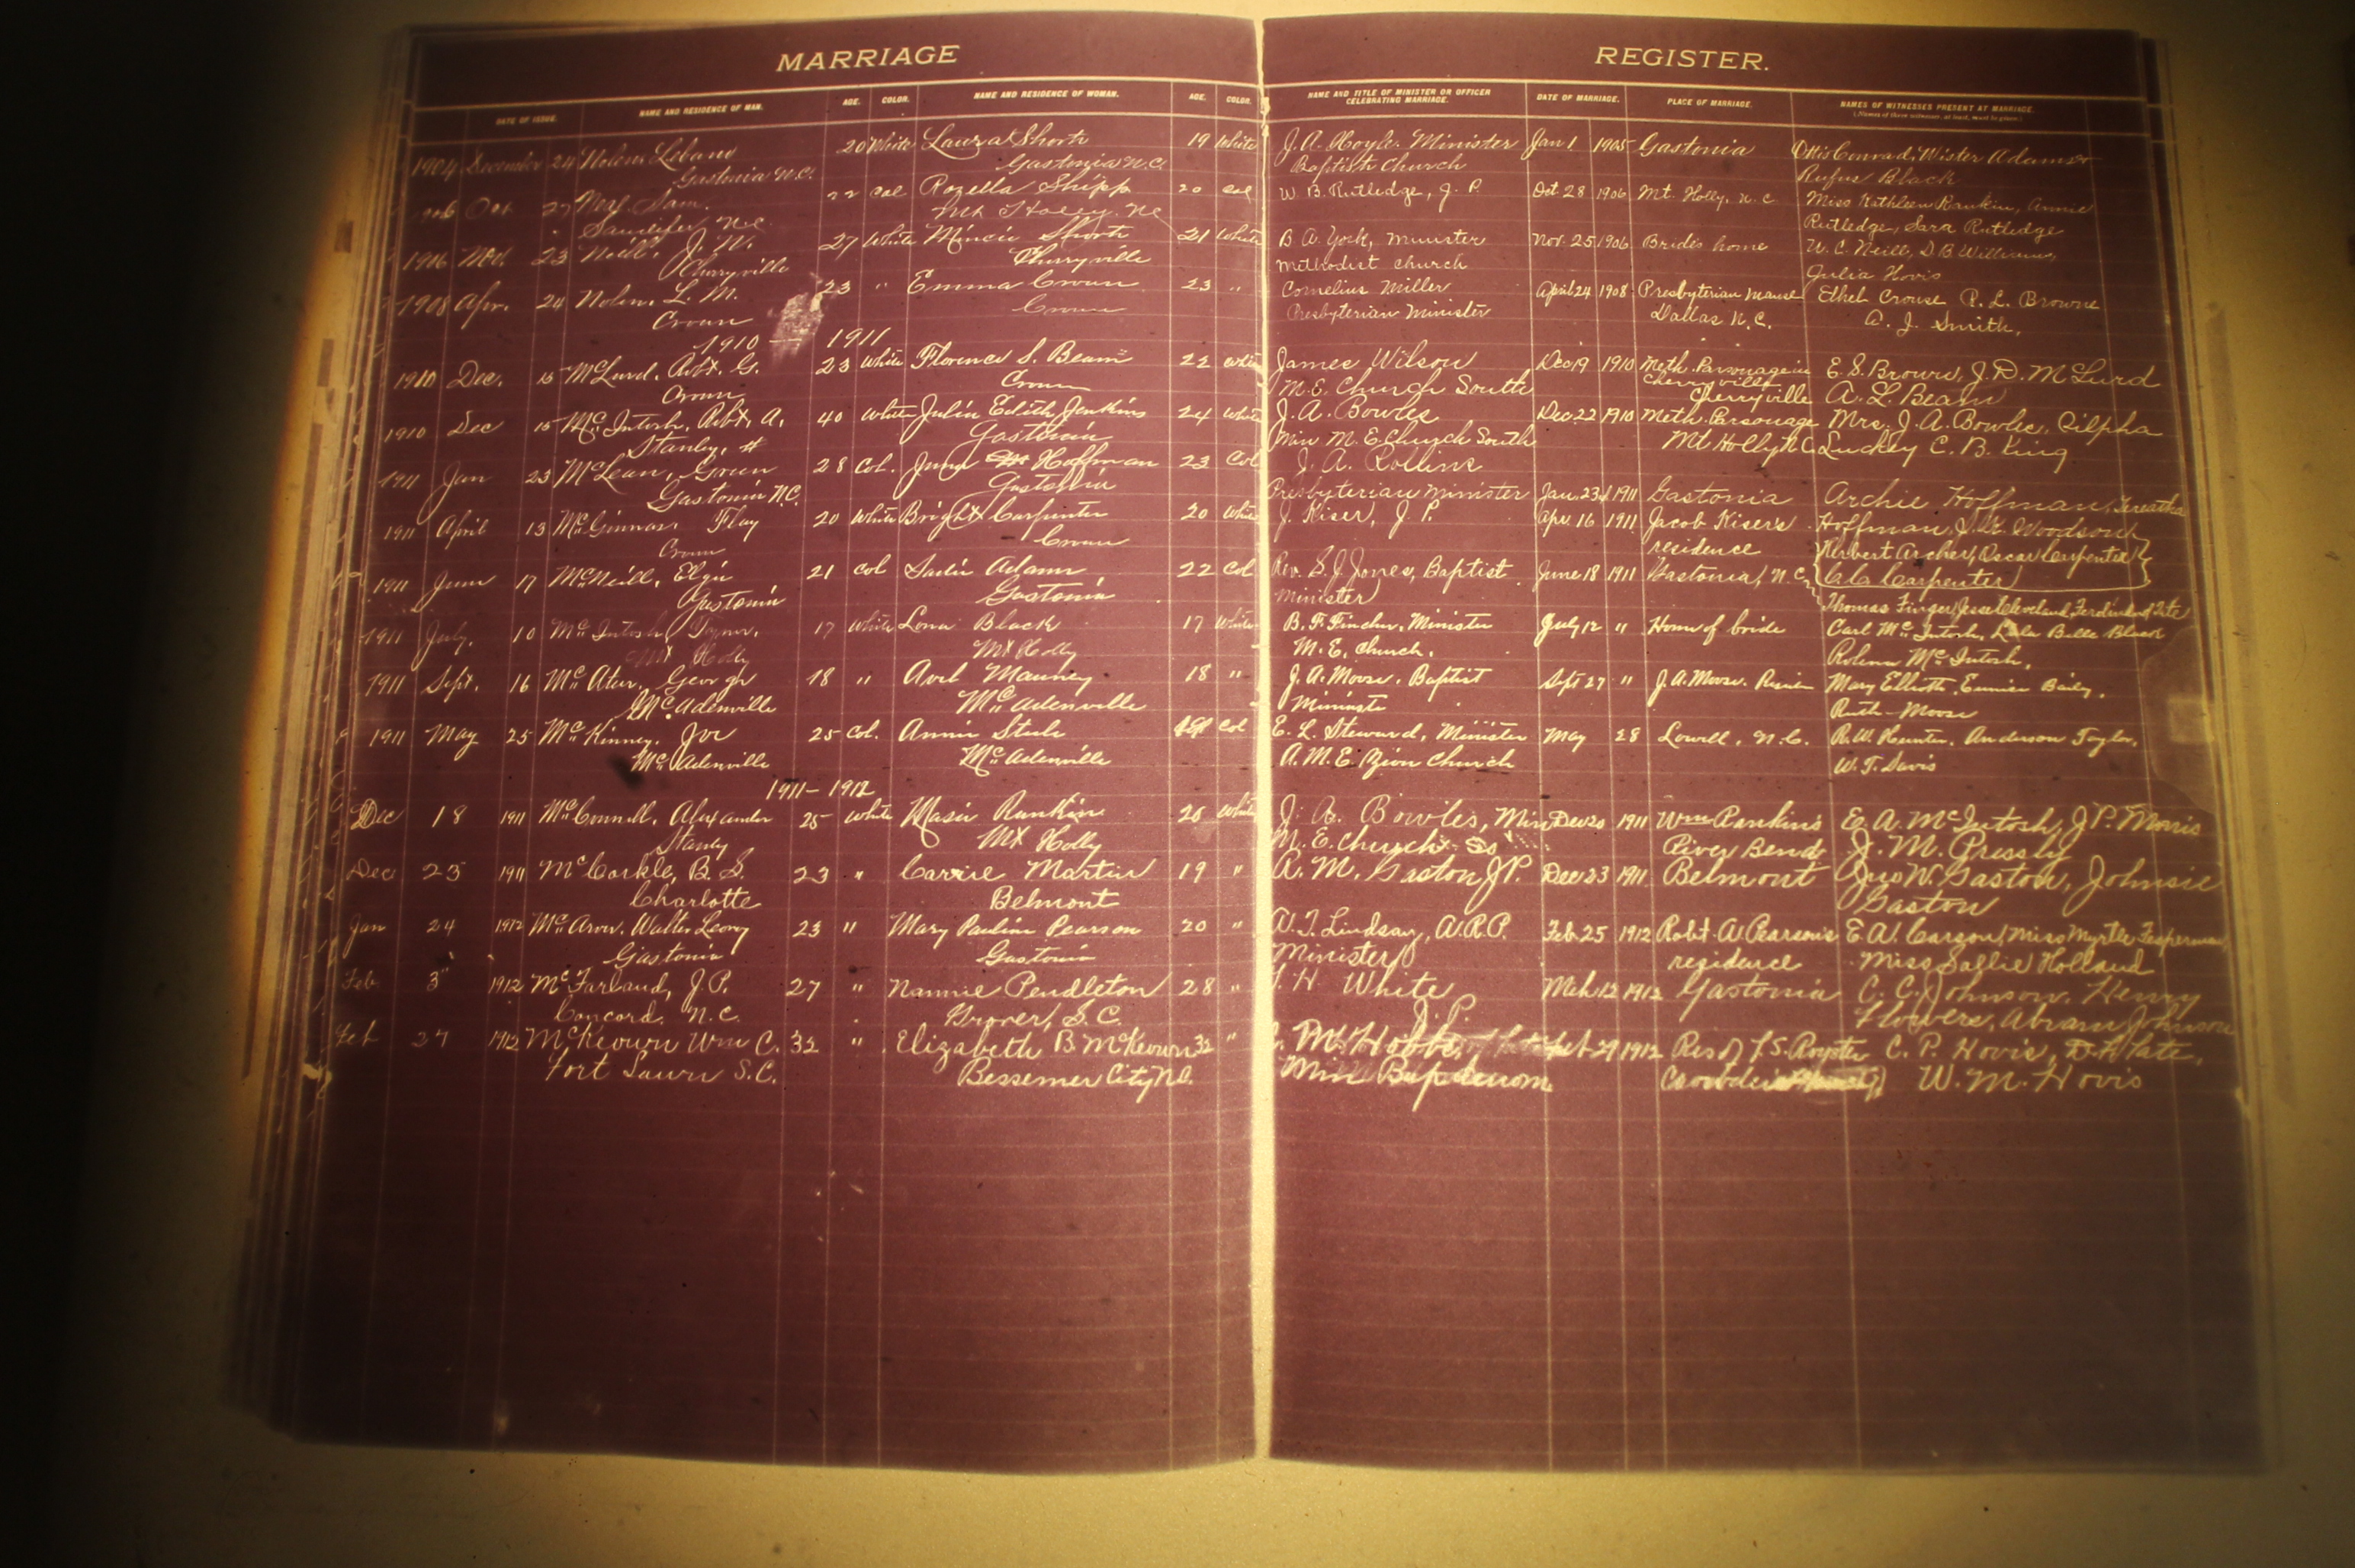 MARRIAGE
REGISTER.
DATE OF ISSUE.
NAME AND RESIDENCE OF MAN.
AGE.
COLOR.
NAME AND RESIDENCE OF WOMAN.
AGE.
COLOR.
NAME AND TITLE OF MINISTER OR OFFICER
CELEBRATING MARRIAGE.
DATE OF MARRIAGE.
PLACE OF MARRIAGE.
NAMES OF WITNESSES PRESENT AT MARRIAGE.
1904 December 24 Nolen Leband 20 White Laura Short 19 White J. A. Hoyle. Minister Jan 1 1905 Gastonia Ottis Conrad, Wister Adams
Gastonia N.C. Gastonia N.C. Baptist Church Rufus Black
Oct 27 Neal Sam. 22 Col Rozella Shipp 20 Col W. B. Rutledge, J. P. Oct. 28 1906 Mt. Holly, N. C Miss Kathleen Rankin, Annie
N.C. Mt Holly. NC Rutledge, Sara Rutledge
1906 23 Neill, J. W. 27 White Short 21 White B. A. York, Minister Nov. 25 1906 Bride's home W. C. Neill, D. B. Williams,
Cherryville Cherryville Methodist Church Julia Hovis
1908 Apr. 24 Nolen, L. M. 23 " Emma 23 " Cornelius Miller April 24 1908 Presbyterian Manse Ethel Crouse P. L. Browne
Presbyterian Minister Dallas N. C. A. J. Smith.
1910 — 1911
1910 Dec. 15 McLurd. Robt. G. 23 White Florence S. Beam 22 White James Wilson Dec 19 1910 Meth. Parsonage in E. S. Brown, J. D. McLurd
M. E. Church South Cherryville A. L. Beam
1910 Dec 15 McIntosh, Robt. A. 40 White Julia Edith Jenkins 24 White J. A. Bowles Dec. 22 1910 Meth. Parsonage Mrs. J. A. Bowles, Cilpha
Stanley, # Gastonia Min M. E. Church South Mt Holly N C Luckey C. B. King
1911 Jan 23 McLean, Green 28 Col. Hoffman 23 Col J. A. Rollins
Gastonia N.C. Gastonia Presbyterian Minister Jan. 23d 1911 Gastonia Archie Hoffman,
1911 April 13 McGinnas Flay 20 White Bright Carpenter 20 White J. Kiser, J. P. Apr. 16 1911 Jacob Kiser's Hoffman, J. W. Woodson
residence Herbert Archer, Oscar Carpenter
1911 June 17 McNeill, Elgie 21 Col Sadie Adams 22 Col Rev. S. J. Jones, Baptist June 18 1911 Gastonia, N.C. C. C. Carpenter
Gastonia Gastonia Minister Thomas Finger, Jesse Cleveland, Ferdinand Tate
1911 July. 10 McIntosh 17 White Lona Black 17 White B. F. Fincher, Minister July 12 " Home of bride Carl McIntosh, Lula Belle Black
Mt Holly Mt Holly M. E. Church. McIntosh.
1911 Sept. 16 McAteer. George 18 " Mauney 18 " J. A. Moore. Baptist Sept 27 " J. A. Moore. Mary Elliott, Eunice Baily,
McAdenville McAdenville Minister Ruth Moore
1911 May 25 McKinney, Joe 25 Col. Annie Steele Col E. L. Steward, Minister May 28 Lowell, N. C. R. W. Hunter, Anderson Taylor,
McAdenville McAdenville A. M. E. Zion Church W. T. Davis
1911 – 1912
Dec 18 1911 McConnell, Alexander 25 White Rankin 20 White J. A. Bowles, Min Dec 20 1911 Wm Rankin's E. A. McIntosh, J P. Morris
Stanley Mt Holly M. E. Church So River Bend J. M. Pressly
Dec 23 1911 McCorkle, B. S. 23 " Carrie Martin 19 " R. M. Gaston, J P. Dec 23 1911 Belmont Jno W. Gaston, Johnsie
Charlotte Belmont Gaston
Jan 24 1912 McArver. Walter Leroy 23 " Mary Pauline Pearson 20 " A. T. Lindsay, A. R. P. Feb 25 1912 Robt. A. Pearson's E. A. Carson, Miss Myrtle Fesperman,
Gastonia Gastonia Minister residence Miss Sallie Holland
Feb 3" 1912 McFarland, J. P. 27 " Nannie Pendleton 28 " T. H. White Mch 12 1912 Gastonia C. C. Johnson, Henry
Concord, N. C. Grover, S. C. J. P. Flowers, Abram Johnson
Feb 27 1912 McKeown Wm C. 32 " Elizabeth B McKeown 32 " Feb 29 1912 C. P. Hovis, D. H. Pate,
Fort Lawn S.C. Bessemer City N.C. Min W. M. Hovis